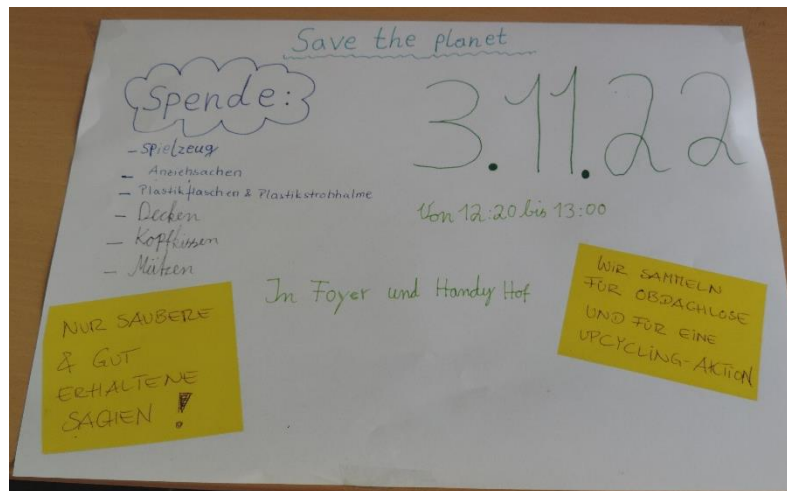 Save the planet
Spende:
- Spielzeug
- Anziehsachen
- Plastikflaschen & Plastikstrohhalme
- Decken
- Kopfkissen
- Mützen
3.11.22
Von 12:20 bis 13:00
In Foyer und Handy Hof
NUR SAUBERE
& GUT
ERHALTENE
SACHEN !
WIR SAMMELN
FÜR OBDACHLOSE
UND FÜR EINE
UPCYCLING-AKTION